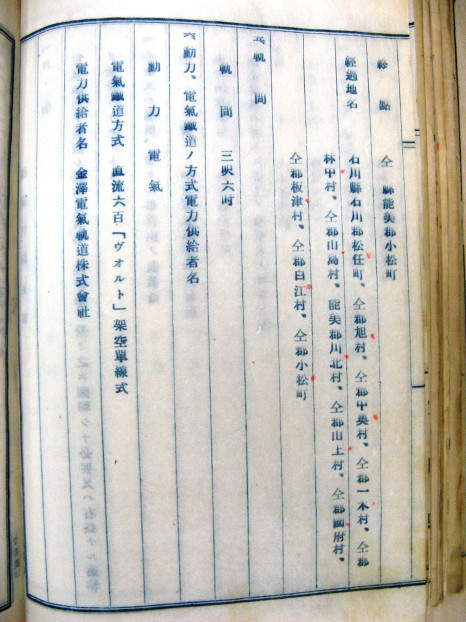 終點 仝縣能美郡小松町
經過地名 石川縣石川郡松任町、仝郡旭村、仝郡中奥村、仝郡一木村、仝郡
林中村、仝郡山島村、能美郡川北村、仝郡山上村、仝郡國府村、
仝郡板津村、仝郡白江村、仝郡小松町
五、軌間
軌間 三呎六吋
六、動力、電氣鐵道ノ方式電力供給者名
動力 電氣
電氣鐵道方式 直流六百「ヴオルト」架空單線式
電力供給者名 金澤電氣軌道株式會社